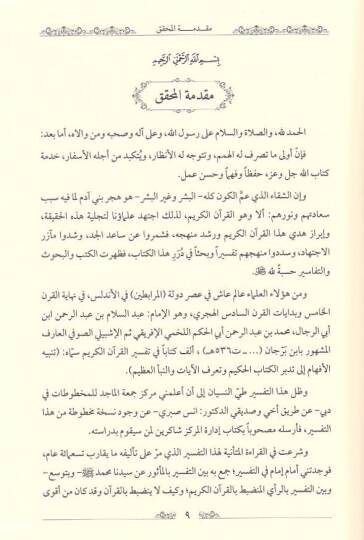 مقدمة المحقق
بسم الله الرحمن الرحيم
مقدمة المحقق
الحمد لله، والصلاة والسلام على رسول الله، وعلى آله وصحبه ومن والاه، أما بعد:
فإن أولى ما تصرف له الهمم، وتتوجه له الأنظار، ويُتكبد من أجله الأسفار، خدمة
كتاب الله جل وعز، حفظاً وفهماً وحسن عمل.
وإن الشقاء الذي عمَّ الكون كله- البشر وغير البشر- هو هجر بني آدم لما فيه سبب
سعادتهم ونورهم: ألا وهو القرآن الكريم، لذلك اجتهد علماؤنا لتجلية هذه الحقيقة،
وإبراز هدي هذا القرآن الكريم ورشد منهجه، فشمروا عن ساعد الجد، وشدوا مآزر
الاجتهاد، وسددوا منهجهم تفسيراً وبحثاً في دُرَرِ هذا الكتاب، فظهرت الكتب والبحوث
والتفاسير حسبةً لله ﷻ.
ومن هؤلاء العلماء عالم عاش في عصر دولة (المرابطين) في الأندلس، في نهاية القرن
الخامس وبدايات القرن السادس الهجري، وهو الإمام: عبد السلام بن عبد الرحمن ابن
أبي الرجال، محمد بن عبد الرحمن أبي الحكم اللخمي الإفريقي ثم الإشبيلي الصوفي العارف
المشهور بابن بَرَّجان (... ــ ٥٣٦هـ) ، ألف كتاباً في تفسير القرآن الكريم سمّاه: (تنبيه
الأفهام إلى تدبر الكتاب الحكيم وتعرف الآيات والنبأ العظيم).
وظل هذا التفسير طيَّ النسيان إلى أن أعلمني مركز جمعة الماجد للمخطوطات في
دبي- عن طريق أخي وصديقي الدكتور: انس صبري- عن وجود نسخة مخطوطة من هذا
التفسير، فأرسله مصحوباً بكتاب إدارة المركز شاكرين لمن سيقوم بدراسته.
وشرعت في القراءة المتأنية لهذا التفسير الذي مرَّ على تأليفه ما يقارب تسعمائة عام،
فوجدتني أمام إمام في التفسير؛ جمع به بين التفسير بالمأثور عن سيدنا محمد ﷺ- ويتوسع-
وبين التفسير بالرأي المنضبط بالقرآن الكريم؛ وكيف لا ينضبط بالقرآن وقد كان من أقوى
٩